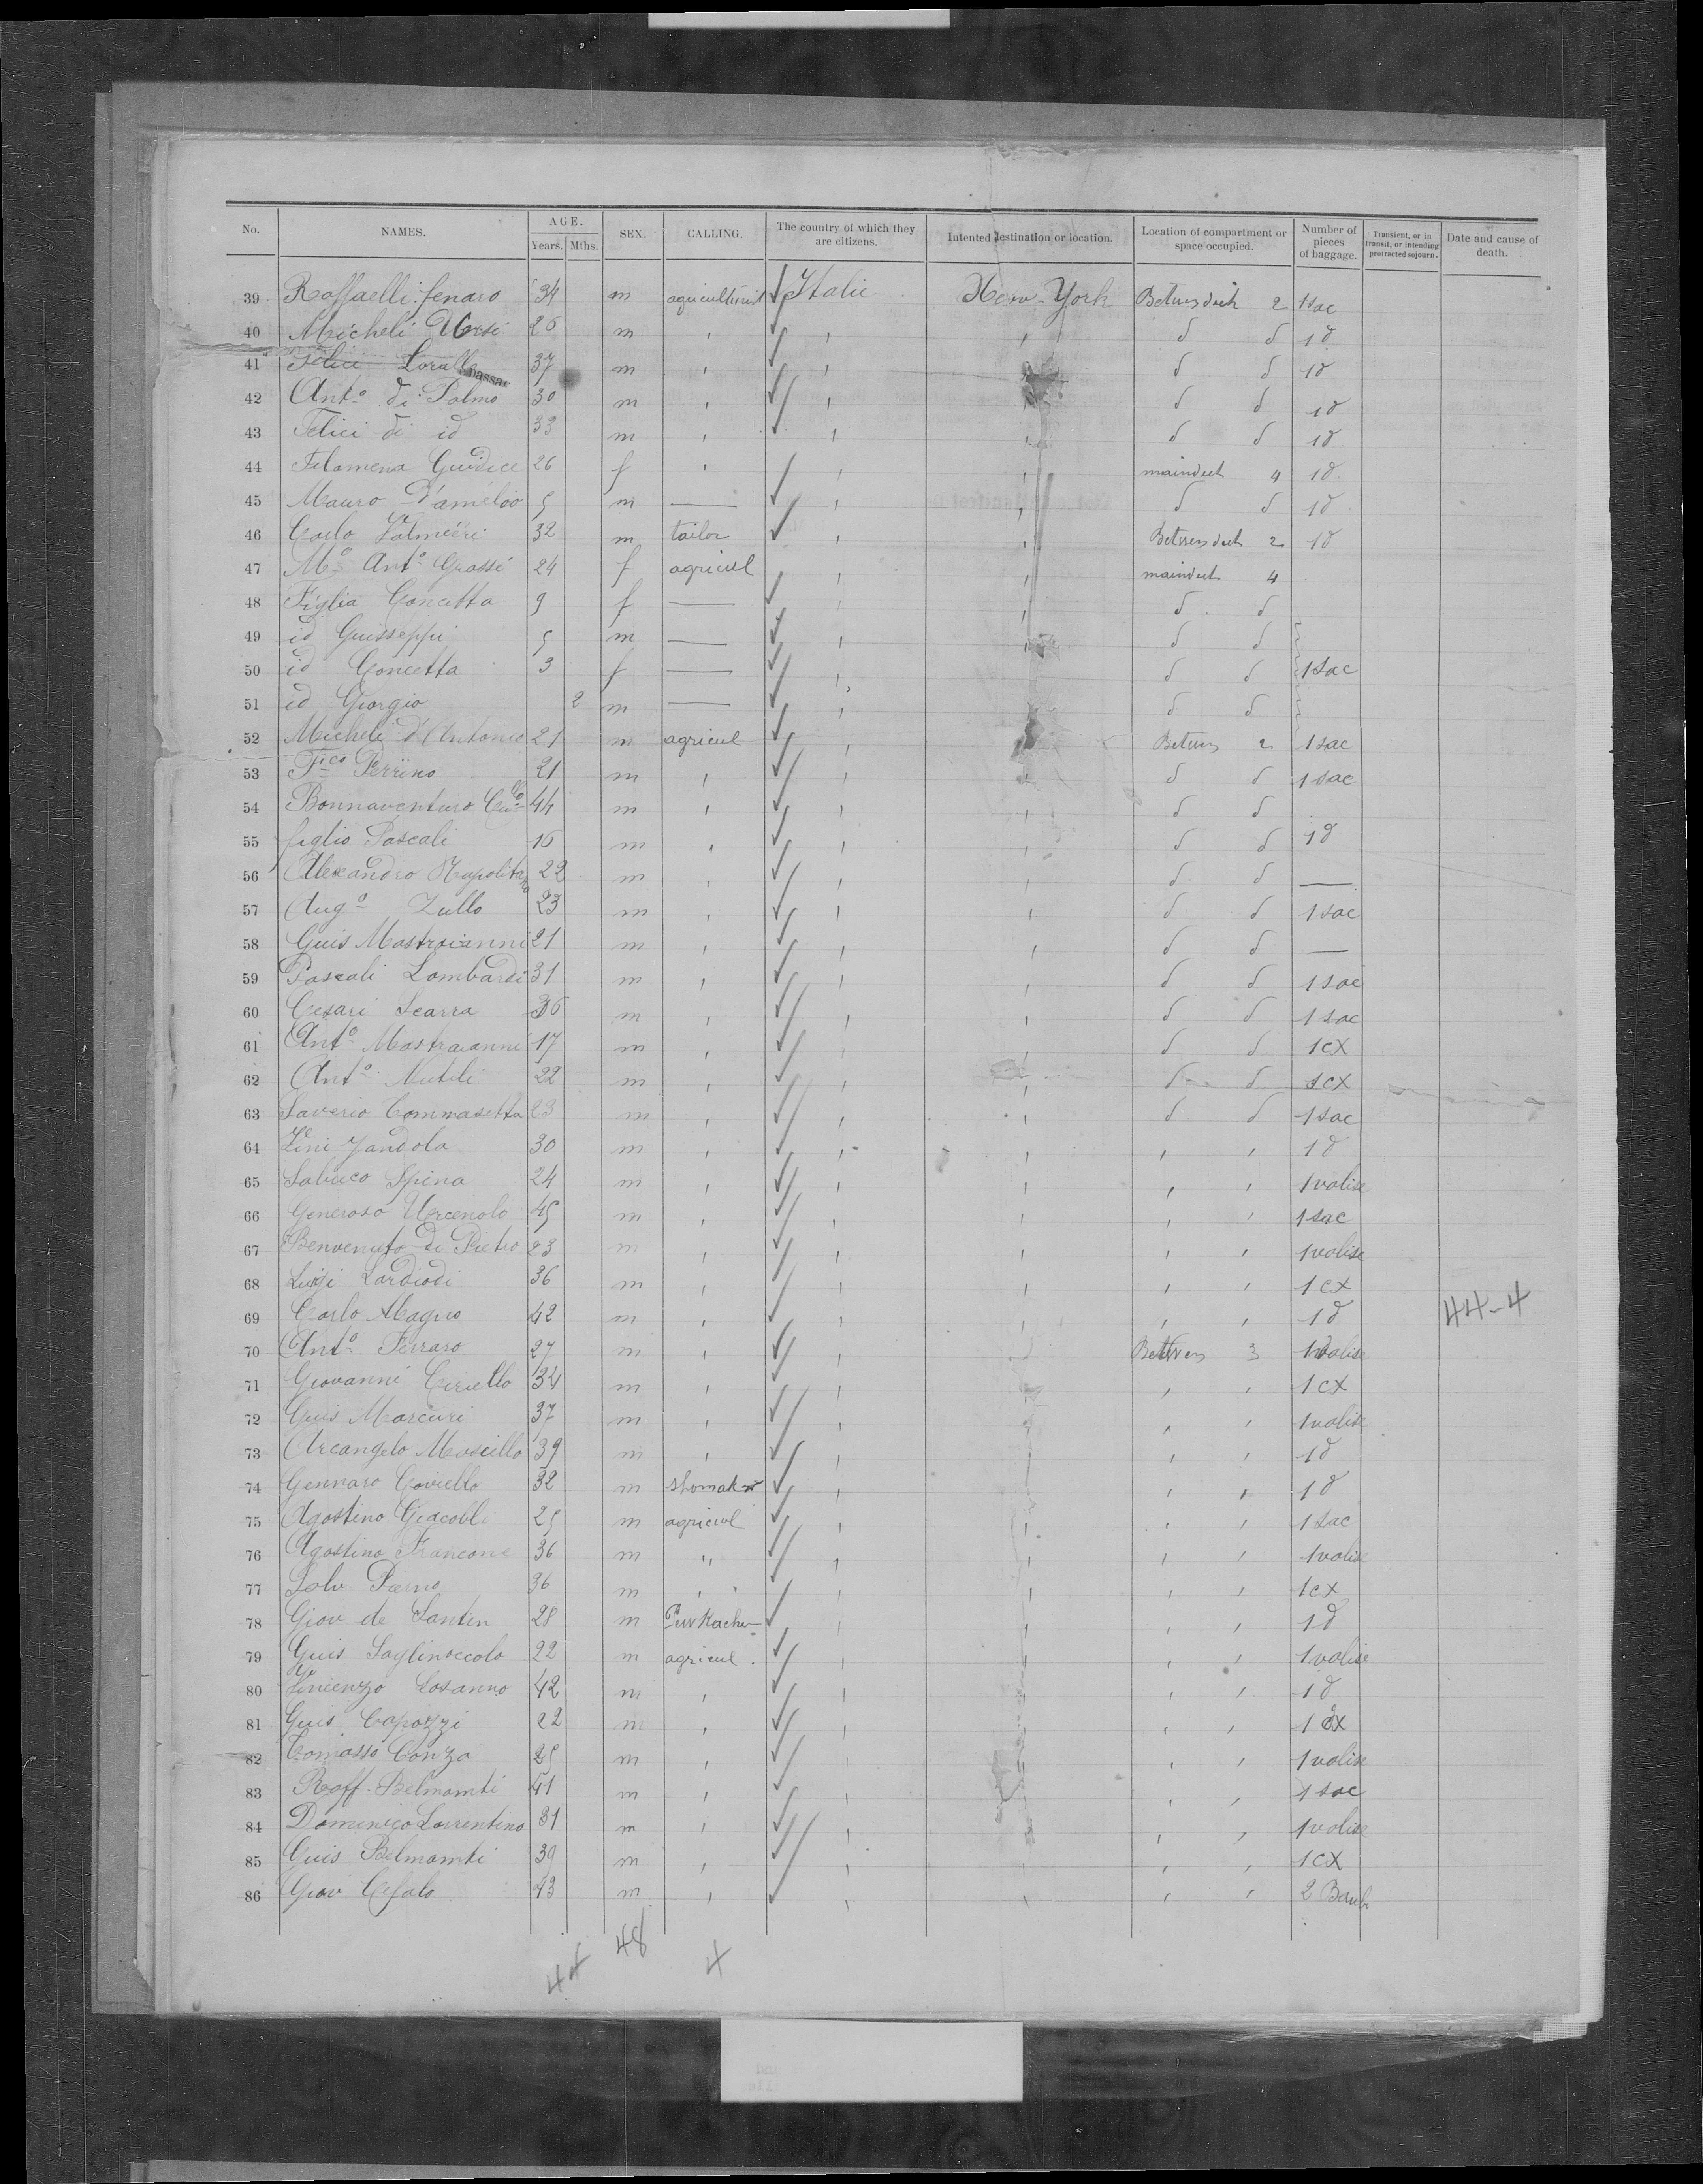 No. NAMES. AGE. Years. Mths. SEX. CALLING. The country of which they are citizens. Intented destination or location. Location of compartment or space occupied. Number of pieces of baggage. Transient, or in transit, or intending protracted sojourn. Date and cause of death.
39 Raffaelli fenaro 34 m agriculturist Italie New-York 2 1 sac
40 Micheli Ursi 26 m , , , d d 1 d
41 Felici 37 m , , , d d 1 d
42 Antº di Palmo 30 m , , , d d 1 d
43 Felici di id 33 m , , , d d 1 d
44 Filomena Giudice 26 f , , , maindeck 4 1 d
45 Mauro D'amelio 5 m — , , d d 1 d
46 Carlo Palmieri 32 m tailor , , Betweendeck 2 1 d
47 Mª Antº Grassi 24 f agricul , , maindeck 4
48 Figlia Concetta 9 f — , , d d
49 id Guisseppi 5 m — , , d d
50 id Concetta 3 f — , , d d 1 sac
51 id Giorgio 2 m — , , d d
52 Micheli d'Antonio 21 m agricul , , Betwen 2 1 sac
53 Fco Perrino 21 m , , , d d 1 sac
54 Bonnaventuro 44 m , , , d d
55 figlio Pascali 16 m , , , d d 1 d
56 Alexandro Napolitano 22 m , , , d d —
57 Augº Zullo 23 m , , , d d 1 sac
58 Guis Mastroianni 21 m , , , d d —
59 Pascali Lombardi 31 m , , , d d 1 sac
60 Cesari Scarra 36 m , , , d d 1 sac
61 Antº Mastroianni 17 m , , , d d 1 cx
62 Antº 22 m , , , d d 1 cx
63 Saverio Commasetta 23 m , , , d d 1 sac
64 Jandola 30 m , , , , , 1 d
65 Spina 24 m , , , , , 1 valise
66 Generoso 45 m , , , , , 1 sac
67 Benvenuto di Pietro 23 m , , , , , 1 valise
68 Luigi 36 m , , , , , 1 cx
69 Carlo Magno 42 m , , , , , 1 d 44-4
70 Antº Ferraro 27 m , , , Betwen 3 1 valise
71 Giovanni Ceriello 34 m , , , , , 1 cx
72 Guis Marcuri 37 m , , , , , 1 valise
73 Arcangelo Moscillo 39 m , , , , , 1 d
74 Gennaro Coviello 32 m shomaker , , , , 1 d
75 Agostino Giacobbi 25 m agricul , , , , 1 sac
76 Agostino Francone 36 m ,, , , , , 1 valise
77 Salv Pierno 36 m , , , , , 1 cx
78 Giov de Santin 28 m , , , , 1 d
79 Guis Saglinoccolo 22 m agricul. , , , , 1 valise
80 Vincenzo Losanno 42 m , , , , , 1 d
81 Guis Capozzi 22 m , , , , , 1 cx
82 Tomasso Conza 25 m , , , , , 1 valise
83 Raff. Belmonti 41 m , , , , , 1 sac
84 Domenico Lorrentino 31 m , , , , , 1 valise
85 Guis Belmonti 39 m , , , , , 1 cx
86 Giov Cefalo 43 m , , , , , 2
44 48 4